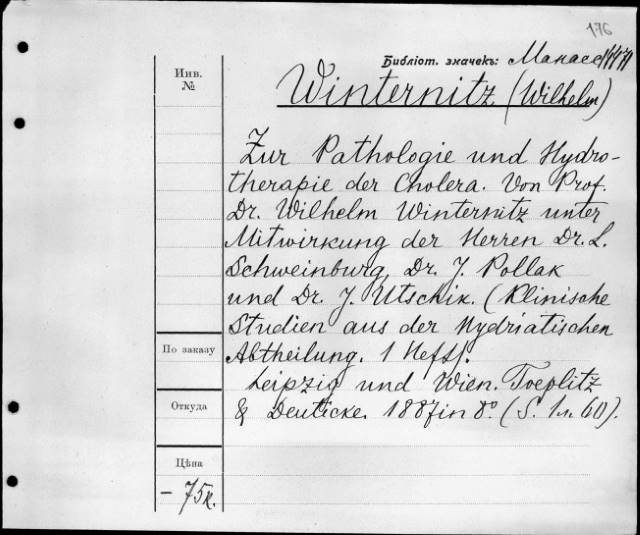 176
Библіот. значекъ: Манасс
Инв.
№
Winternitz (Wilhelm)
Zur Pathologie und Hydro-
therapie der Cholera. Von Prof.
Dr. Wilhelm Winternitz unter
Mitwirkung der Herren Dr. L.
Schweinburg, Dr. J. Pollak
und Dr. J. Utschik. (Klinische
Studien aus der Hydriatischen
По заказу
Abtheilung. 1 Heft).
Leipzig und Wien. Toeplitz
Откуда
& Deuticke. 1887 in 8º. (S. 1 л. 60).
Цѣна
- 75 к.